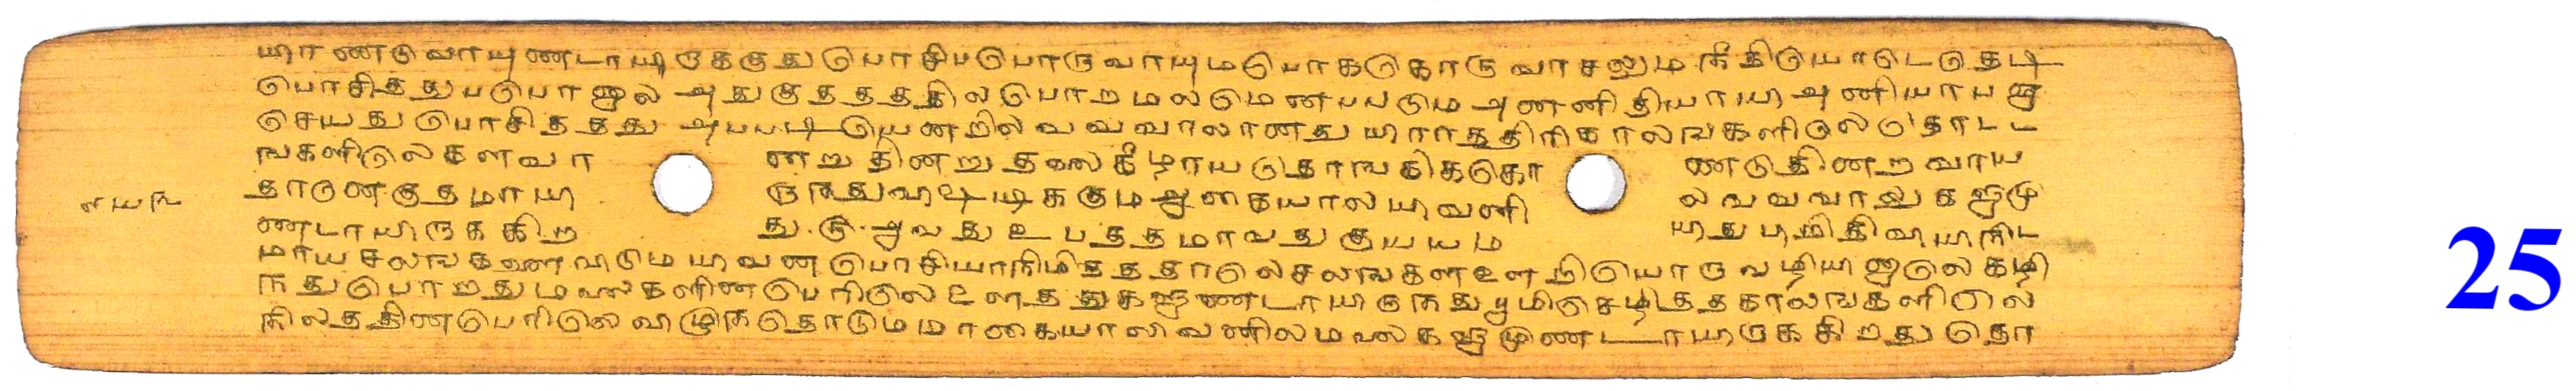 யாணடுவாயுணடாயிருககுதுபொசிபபொருவாயுமபொகதொருவாசலுமநீதியொடெதடி
பொசிததுபபொனால அதுகுததததிலபொறமலமெணபபடும அணனிதியாயஅனியாயஞ
செயதுபொசிதததது அபபடியெனறிலவவவாலானதுயிராததிரிகாலஙகளிலெதொட
ஙகளிலெகனவா ணறுதினறுதலைகீழாயதொஙகிககொ ணடுதினறவாய
தாணெகுதமாயி ருநதுவிஷடிககுமஆகையாலயிவனி லவவவாலுகளுமு
ணடாயிருககிற து. ரு. அவதுஉபததமாவதுகுயயம யிதுபுமிதிவுயிரிட
மாயசலஙகளைவிடுமயிவனபொசியாநிமிததததாலெசலஙகளஊறியொருவழியினாலெகழி
நதுபொறதுமலைகளினபெரிலெஊதததுகளுணடாயிருநதுபூமிசெழிதகாலஙகளிலெ
நிலததினபெரிலெவிழுநதொடுமமாகையாலிவனிலமலைகளுமுணடாயிருககிறதுதொ
எயஙு
25